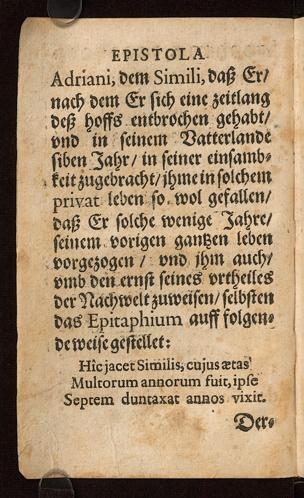 EPISTOLA
Adriani, dem Simili, daß Er/
nach dem Er sich eine zeitlang
deß hoffs entbrochen gehabt/
vnd in seinem Vatterlande
siben Jahr/ in seiner einsamb-
keit zugebracht/ ihme in solchem
privat leben so wol gefallen/
daß Er solche wenige Jahre/
seinem vorigen gantzen leben
vorgezogen/ vnd jhm auch/
vmb den ernst seines vrtheiles
der Nachwelt zuweisen/ selbsten
das Epitaphium auff folgen-
de weise gestellet:
Hîc jacet Similis, cujus ætas
Multorum annorum fuit, ipse
Septem duntaxat annos vixit.
Der-